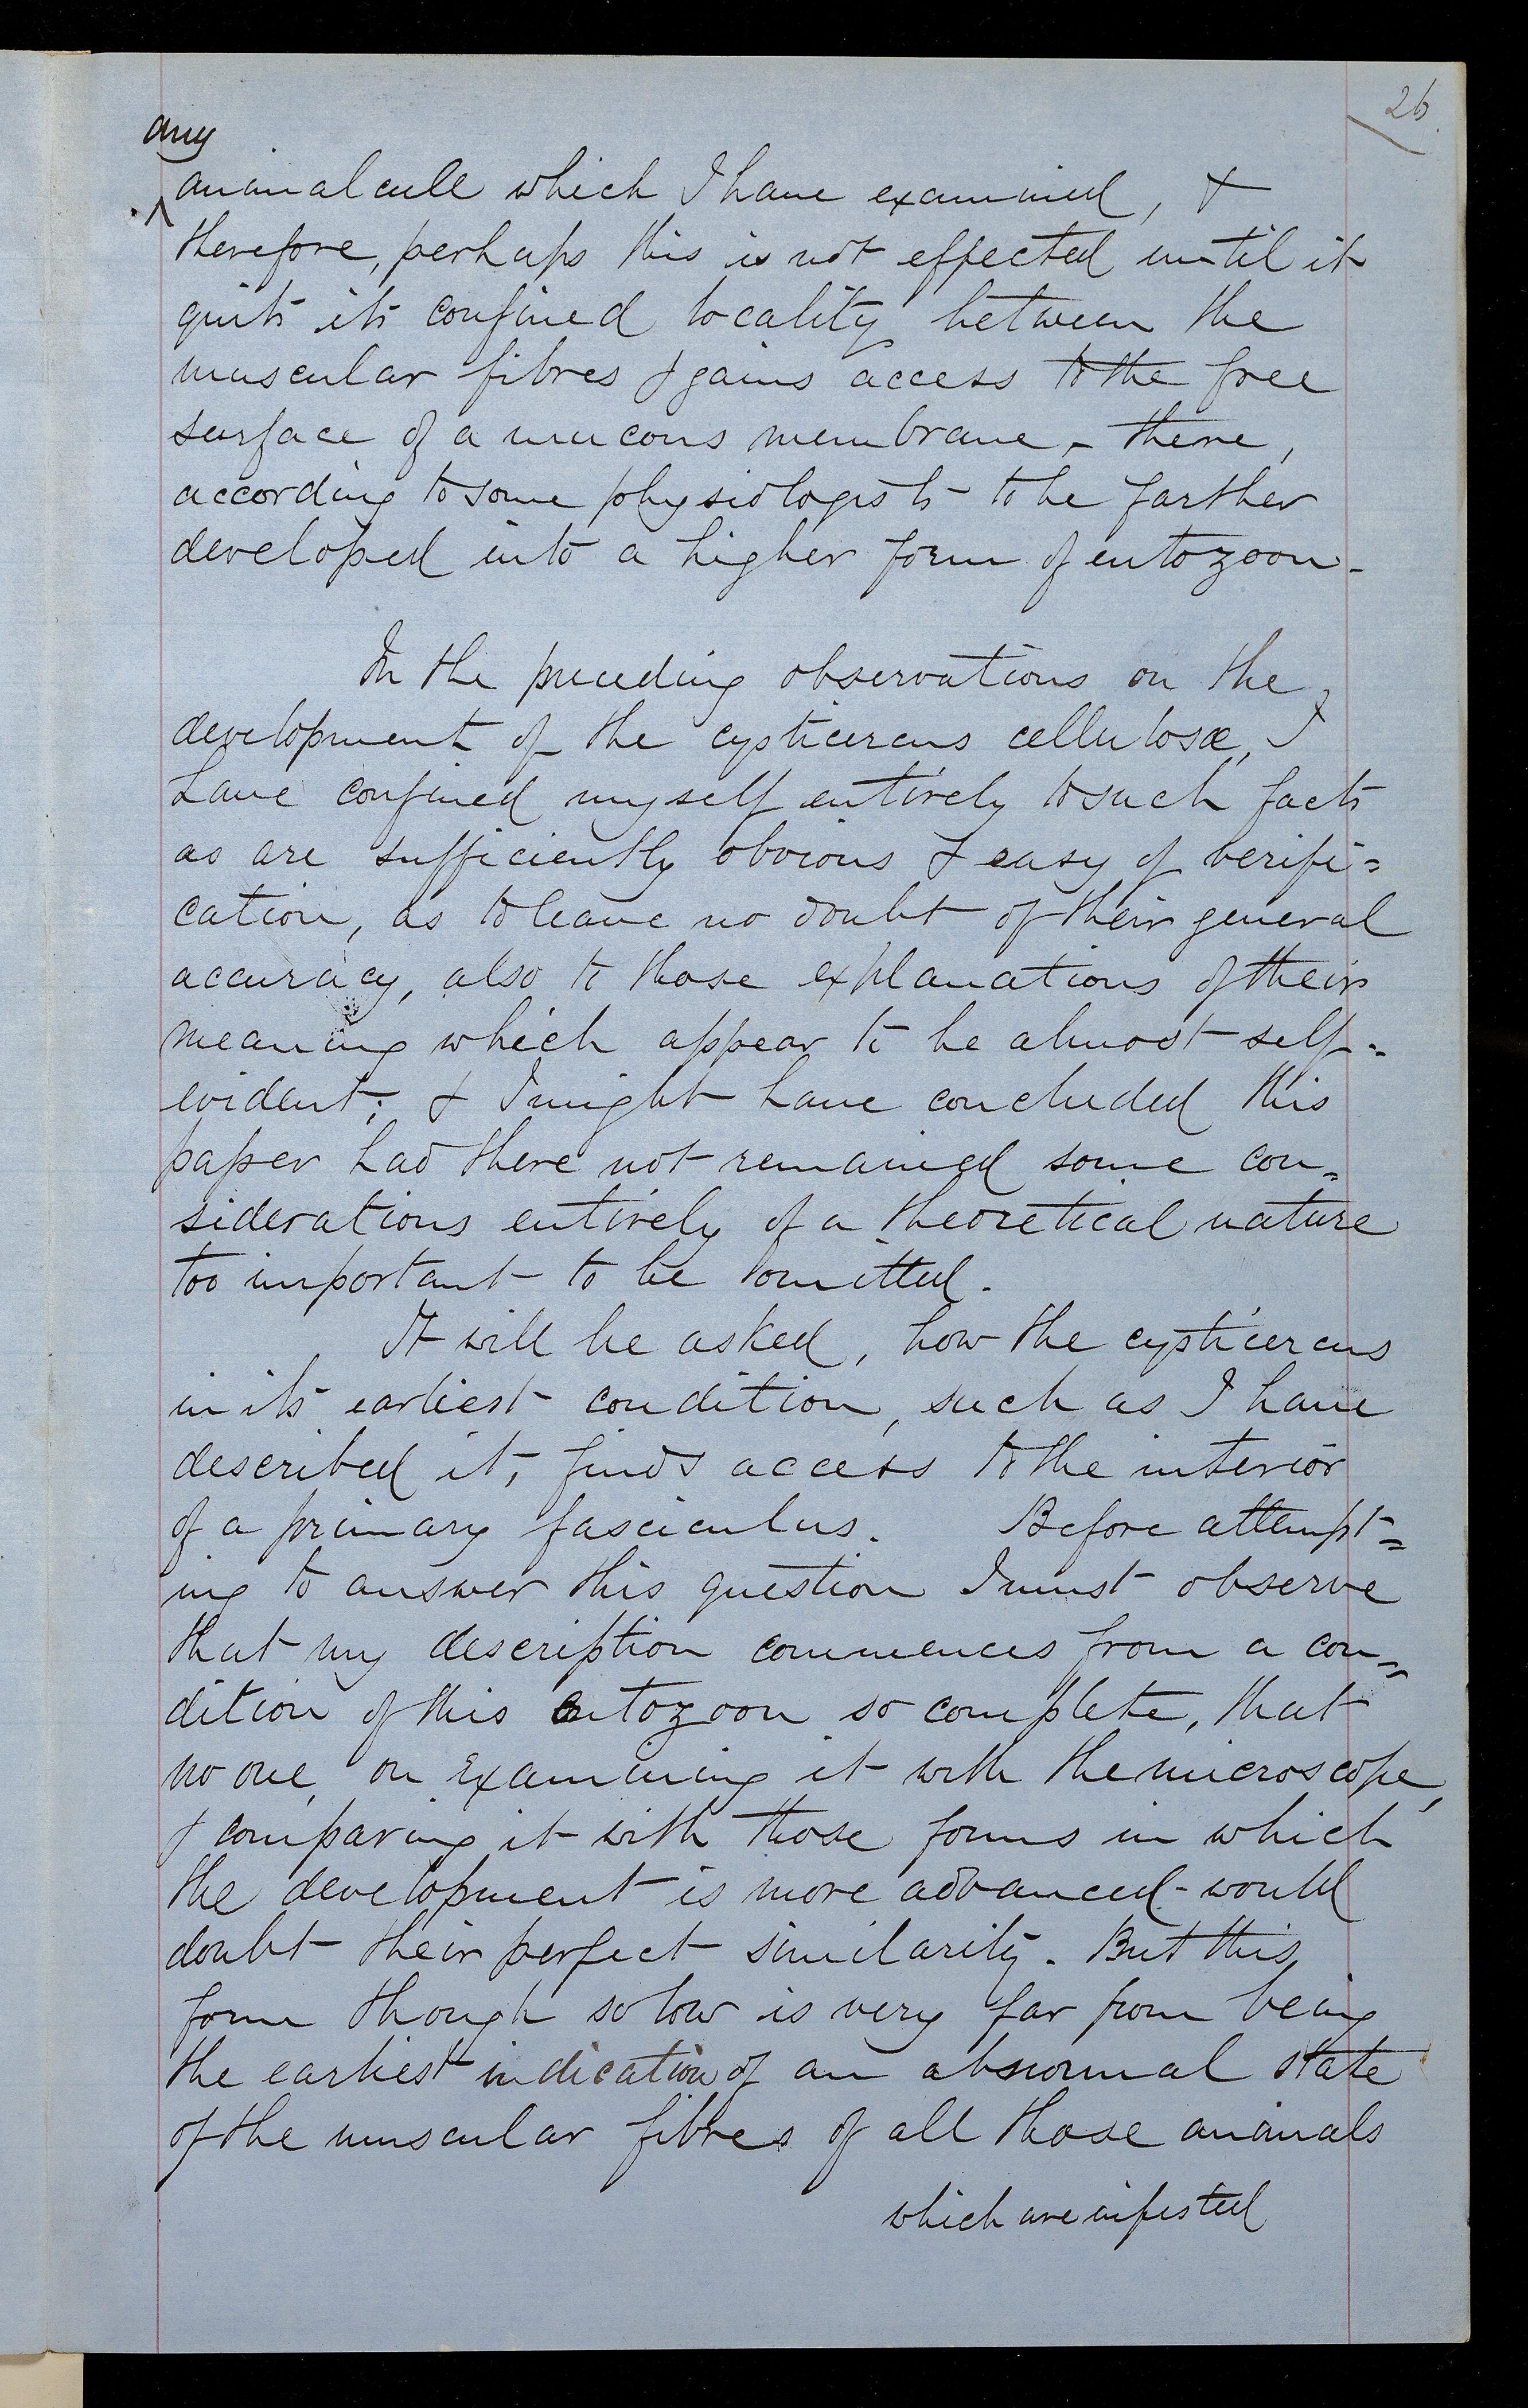 26
any
animalcule which I have examined, &
therefore, perhaps this is not effected until it
quits its confined locality between the
muscular fibres & gains access to the free
surface of a mucous membrane, - there,
according to some physiologists - to be farther
developed into a higher form of entozoon -
In the preceding observations on the
development of the cysticercus cellulosæ, I
have confined myself entirely to such facts
as are sufficiently obvious & easy of verifi=
cation, as to leave no doubt of their general
accuracy, also to those explanations of their
meaning which appear to be almost self=
evident; & I might have concluded this
paper had there not remained some con=
siderations entirely of a theoretical nature
too important to be omitted.
It will be asked, how the cysticercus
in its earliest condition, such as I have
described it, finds access to the interior
of a primary fasciculus. Before attempt=
ing to answer this question I must observe
that my description commences from a con=
dition of this entozoon so complete, that
no one, on examining it with the microscope,
& comparing it with those forms in which
the development is more advanced - would
doubt their perfect similarity. But this
form though so low is very far from being
the earliest indication of an abnormal state
of the muscular fibres of all those animals
which are infested